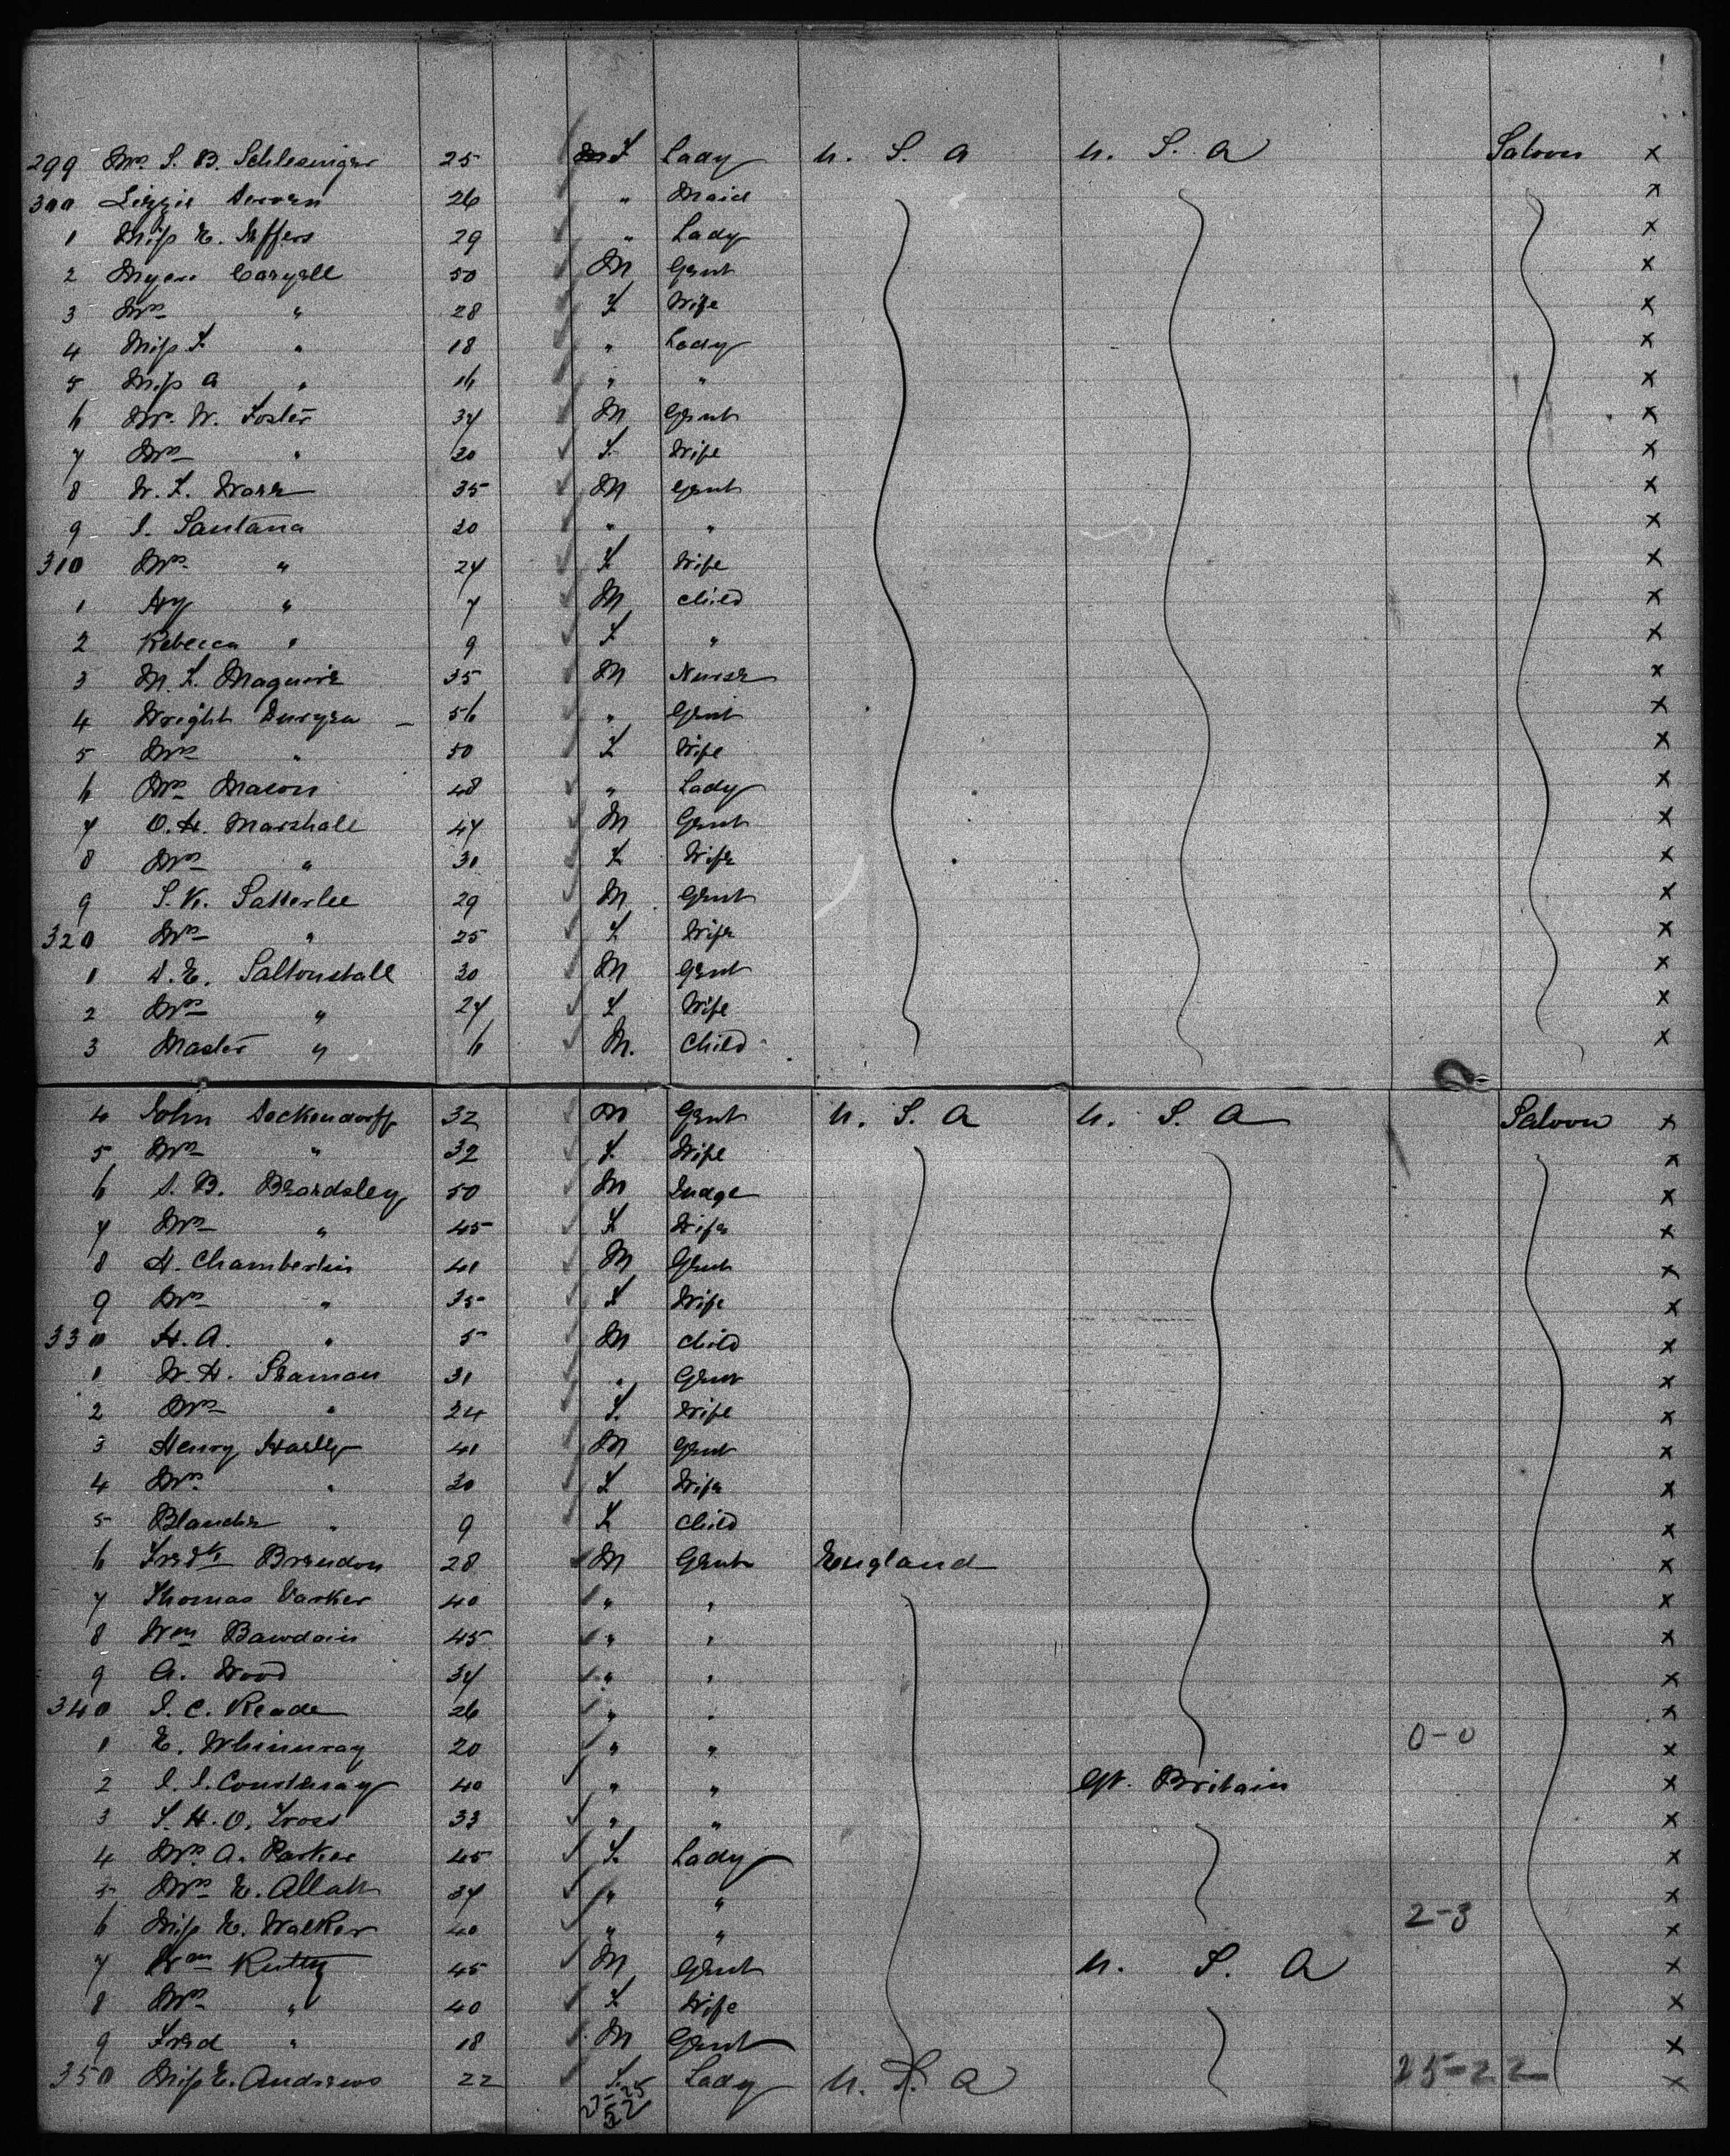 299 Mrs S. B. Schlesinger 25 F Lady U. S. A U. S. A Saloon x
300 Lizzie 26 " Maid x
1 Miss E. Jeffers 29 " Lady x
2 Myers Coryell 50 M Gent x
3 Mrs " 28 F Wife x
4 Miss F. " 18 " Lady x
5 Miss A " 16 " " x
6 W. Foster 34 M Gent x
7 Mrs " 30 F. Wife x
8 W. F. 35 M Gent x
9 J. Santana 30 " " x
310 Mrs " 24 F Wife x
1 Hy " 7 M Child x
2 Rebecca " 9 F " x
3 M. F. Maguire 35 M Nurse x
4 Wright Duryea 56 " Gent x
5 Mrs " 50 F Wife x
6 Mrs Mason 48 " Lady x
7 O. H. Marshall 47 M Gent x
8 Mrs " 31 F Wife x
9 S. K. Satterlee 29 M Gent x
320 Mrs " 25 F Wife x
1 D. E. Saltonstall 30 M Gent x
2 Mrs " 24 F Wife x
3 Master " 6 M. Child x
4 John Dockendorff 32 M Gent U. S. A U. S. A Saloon x
5 Mrs " 32 F. Wife x
6 S. B. Beardsley 50 M Judge x
7 Mrs " 45 F Wife x
8 H. Chamberlin 41 M Gent x
9 Mrs " 35 F Wife x
330 H. A. " 5 M Child x
1 W. H. Seaman 31 " Gent x
2 Mrs " 24 F. Wife x
3 Henry Harley 41 M Gent x
4 Mrs " 30 F Wife x
5 Blanche " 9 F Child x
6 Fredk Brendon 28 M Gent England x
7 Thomas Parker 40 " " x
8 Wm Bawdain 45 " " x
9 A. Wood 34 " " x
340 J. C. Reade 26 " " x
1 E. Whinwray 20 " " 0-0 x
2 J. J. Courtenay 40 " " Gt. Britain x
3 S. H. O. 33 " " x
4 Mrs A. Parker 45 F. Lady x
5 Mrs E. Allatt 34 " " x
6 Miss E. Walker 40 " " 2-3 x
7 Wm Rutty 45 M Gent U. S. A x
8 Mrs " 40 F Wife x
9 Fred " 18 M Gent x
350 Miss E. Andrews 22 F. Lady U. S. A 25-22 x
27-25
52